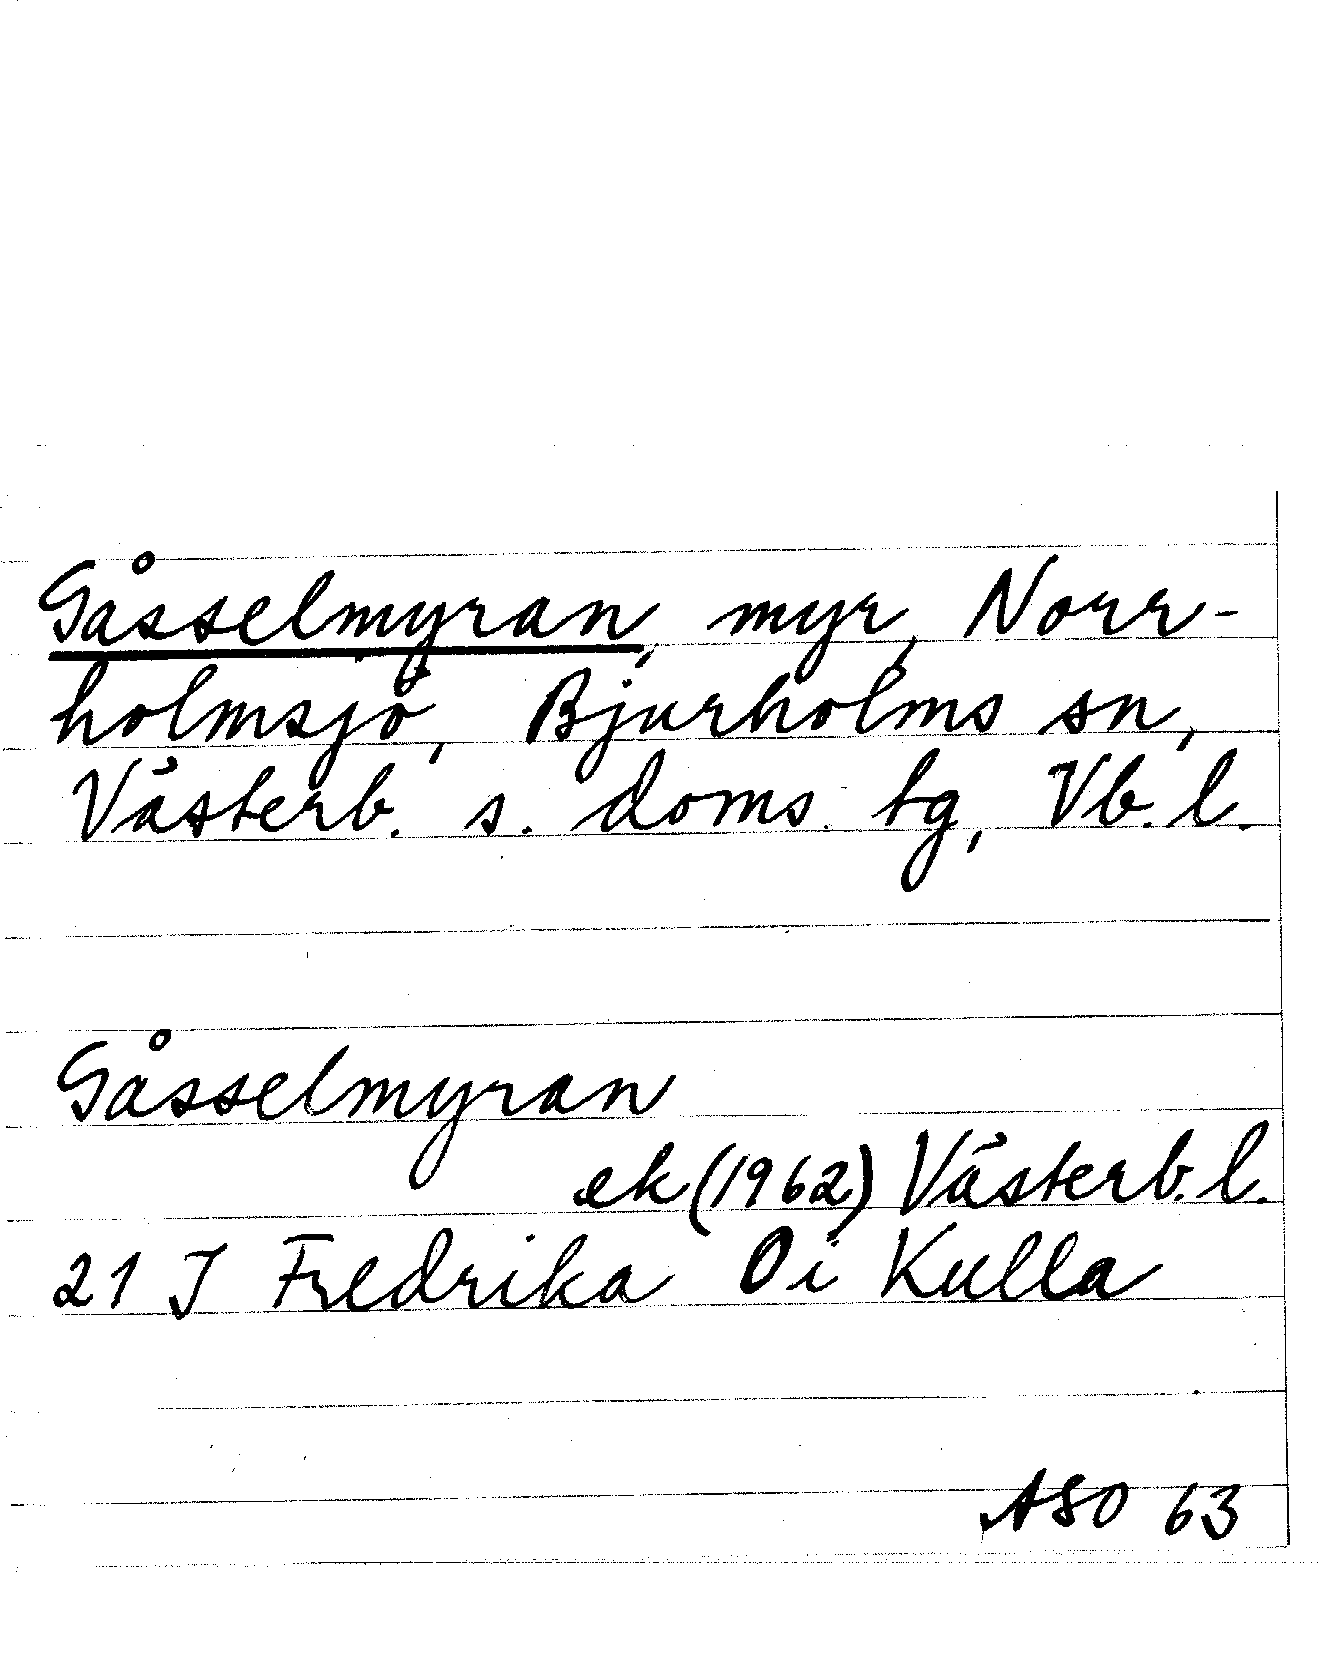 Gåsselmyran, myr, Norr-
holmsjö, Bjurholms sn,
Västerb. s. doms. tg, Vb. l.
Gåsselmyran
ek (1962) Västerb. l.
21 J Fredrika 0 i Kulla
ASO 63